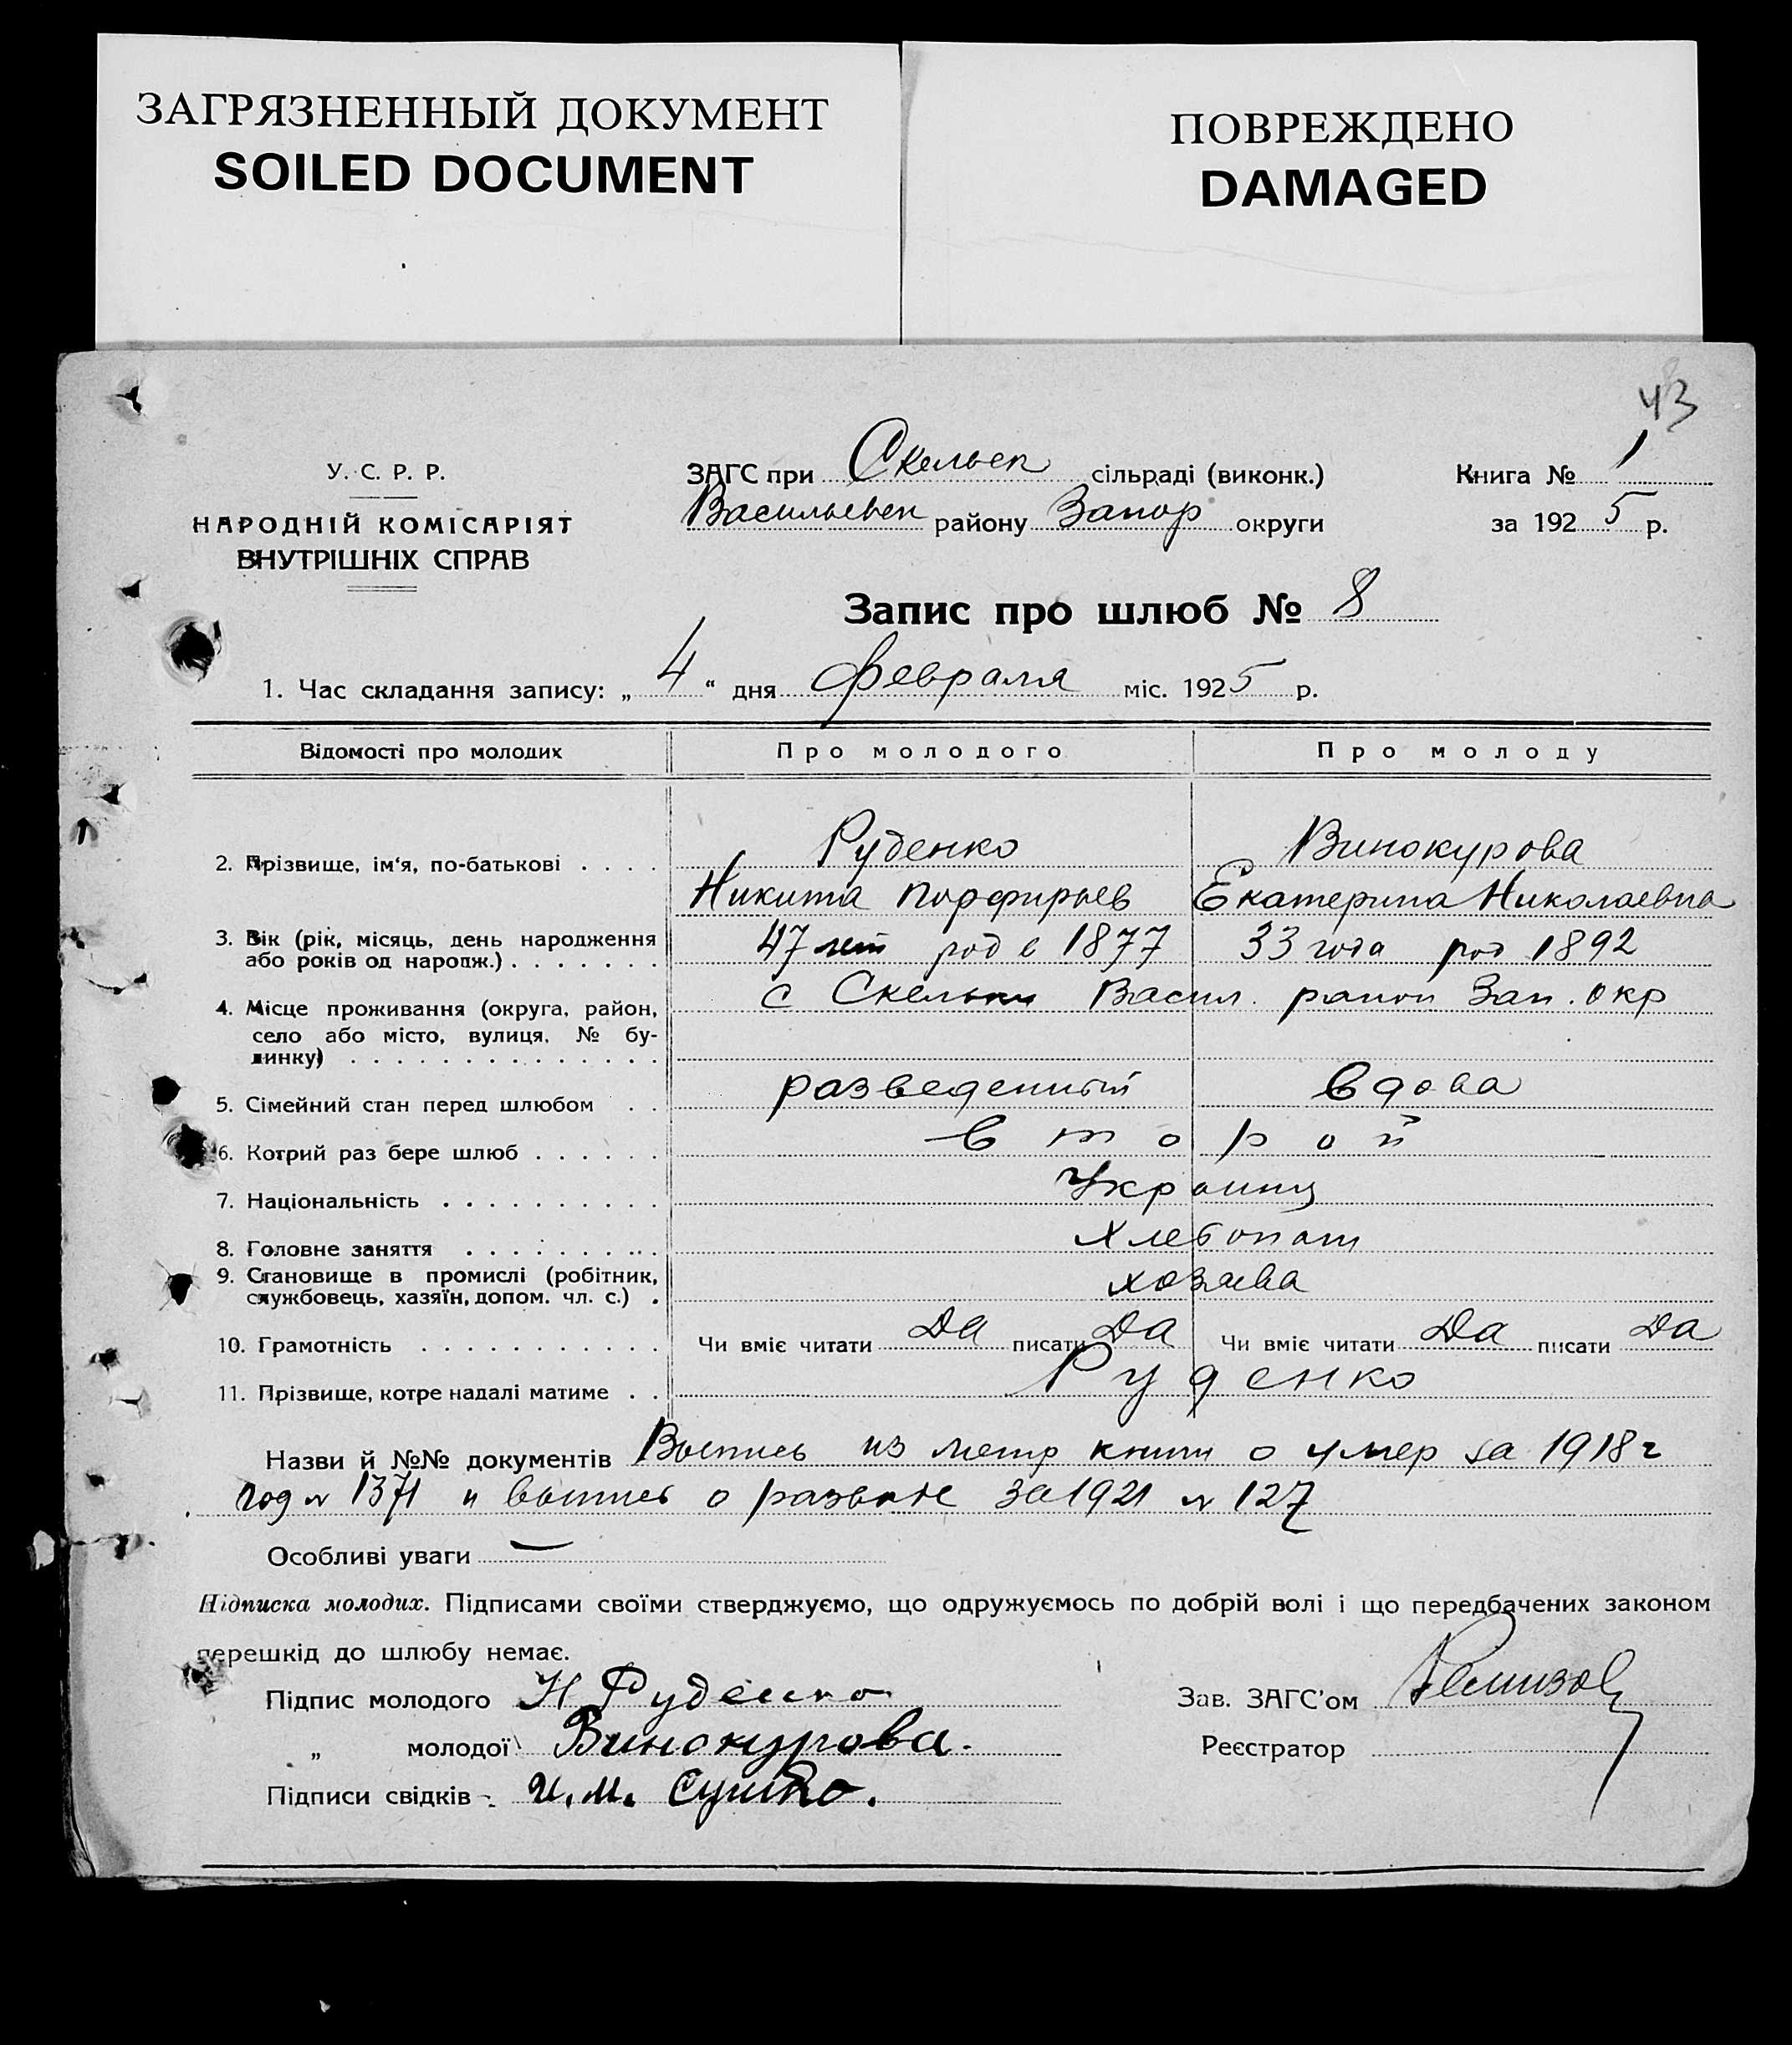 ЗАГРЯЗНЕННЫЙ ДОКУМЕНТ
SOILED DOCUMENT
ПОВРЕЖДЕНО
DAMAGED
43
У. С. Р. Р.
НАРОДНІЙ КОМІСАРІЯТ
ВНУТРІШНІХ СПРАВ
ЗАГС при Скельен сільраді (виконк.)
Васильевск району Запор округи
Книга № 1
за 1925 р.
Запис про шлюб № 8
1. Час складання запису: „ 4 “ дня февраля міс. 1925 р.
Відомості про молодих Про молодого Про молоду
2. Прізвище, ім'я, по-батькові . . . . Руденко Винокурова
Никита Порфирьев Екатерина Николаевна
3. Вік (рік, місяць, день народження або років од нарoдж.) . . . . . . . 47 лет род в 1877 33 года род 1892
4. Місце проживання (округа, район, село або місто, вулиця, № будинку) . . . . . . . . . . . . . . с Скельки Васил. район Зап. окр
5. Сімейний стан перед шлюбом . . разведенный вдова
6. Котрий раз бере шлюб . . . . . . второй
7. Національність . . . . . . . . . . Украинц
8. Головне заняття . . . . . . . . . Хлебопаш
9. Становище в промислі (робітник, службовець, хазяїн, допом. чл. с.) . хозяева
10. Грамотність . . . . . . . . . . . Чи вміє читати Да писати Да Чи вміє читати Да писати Да
11. Прізвище, котре надалі матиме . . Руденко
Назви й №№ документів Выпись из метр книги о умер за 1918 г
год № 1371 и выпись о разводе за 1921 № 127
Особливі уваги —
Підписка молодих. Підписами своїми стверджуємо, що одружуємось по добрій волі і що передбачених законом
перешкід до шлюбу немає.
Підпис молодого Н Руденко
„ молодої Винокурова.
Підписи свідків И. М. Сушко.
Зав. ЗАГС'ом Ремизов
Реєстратор